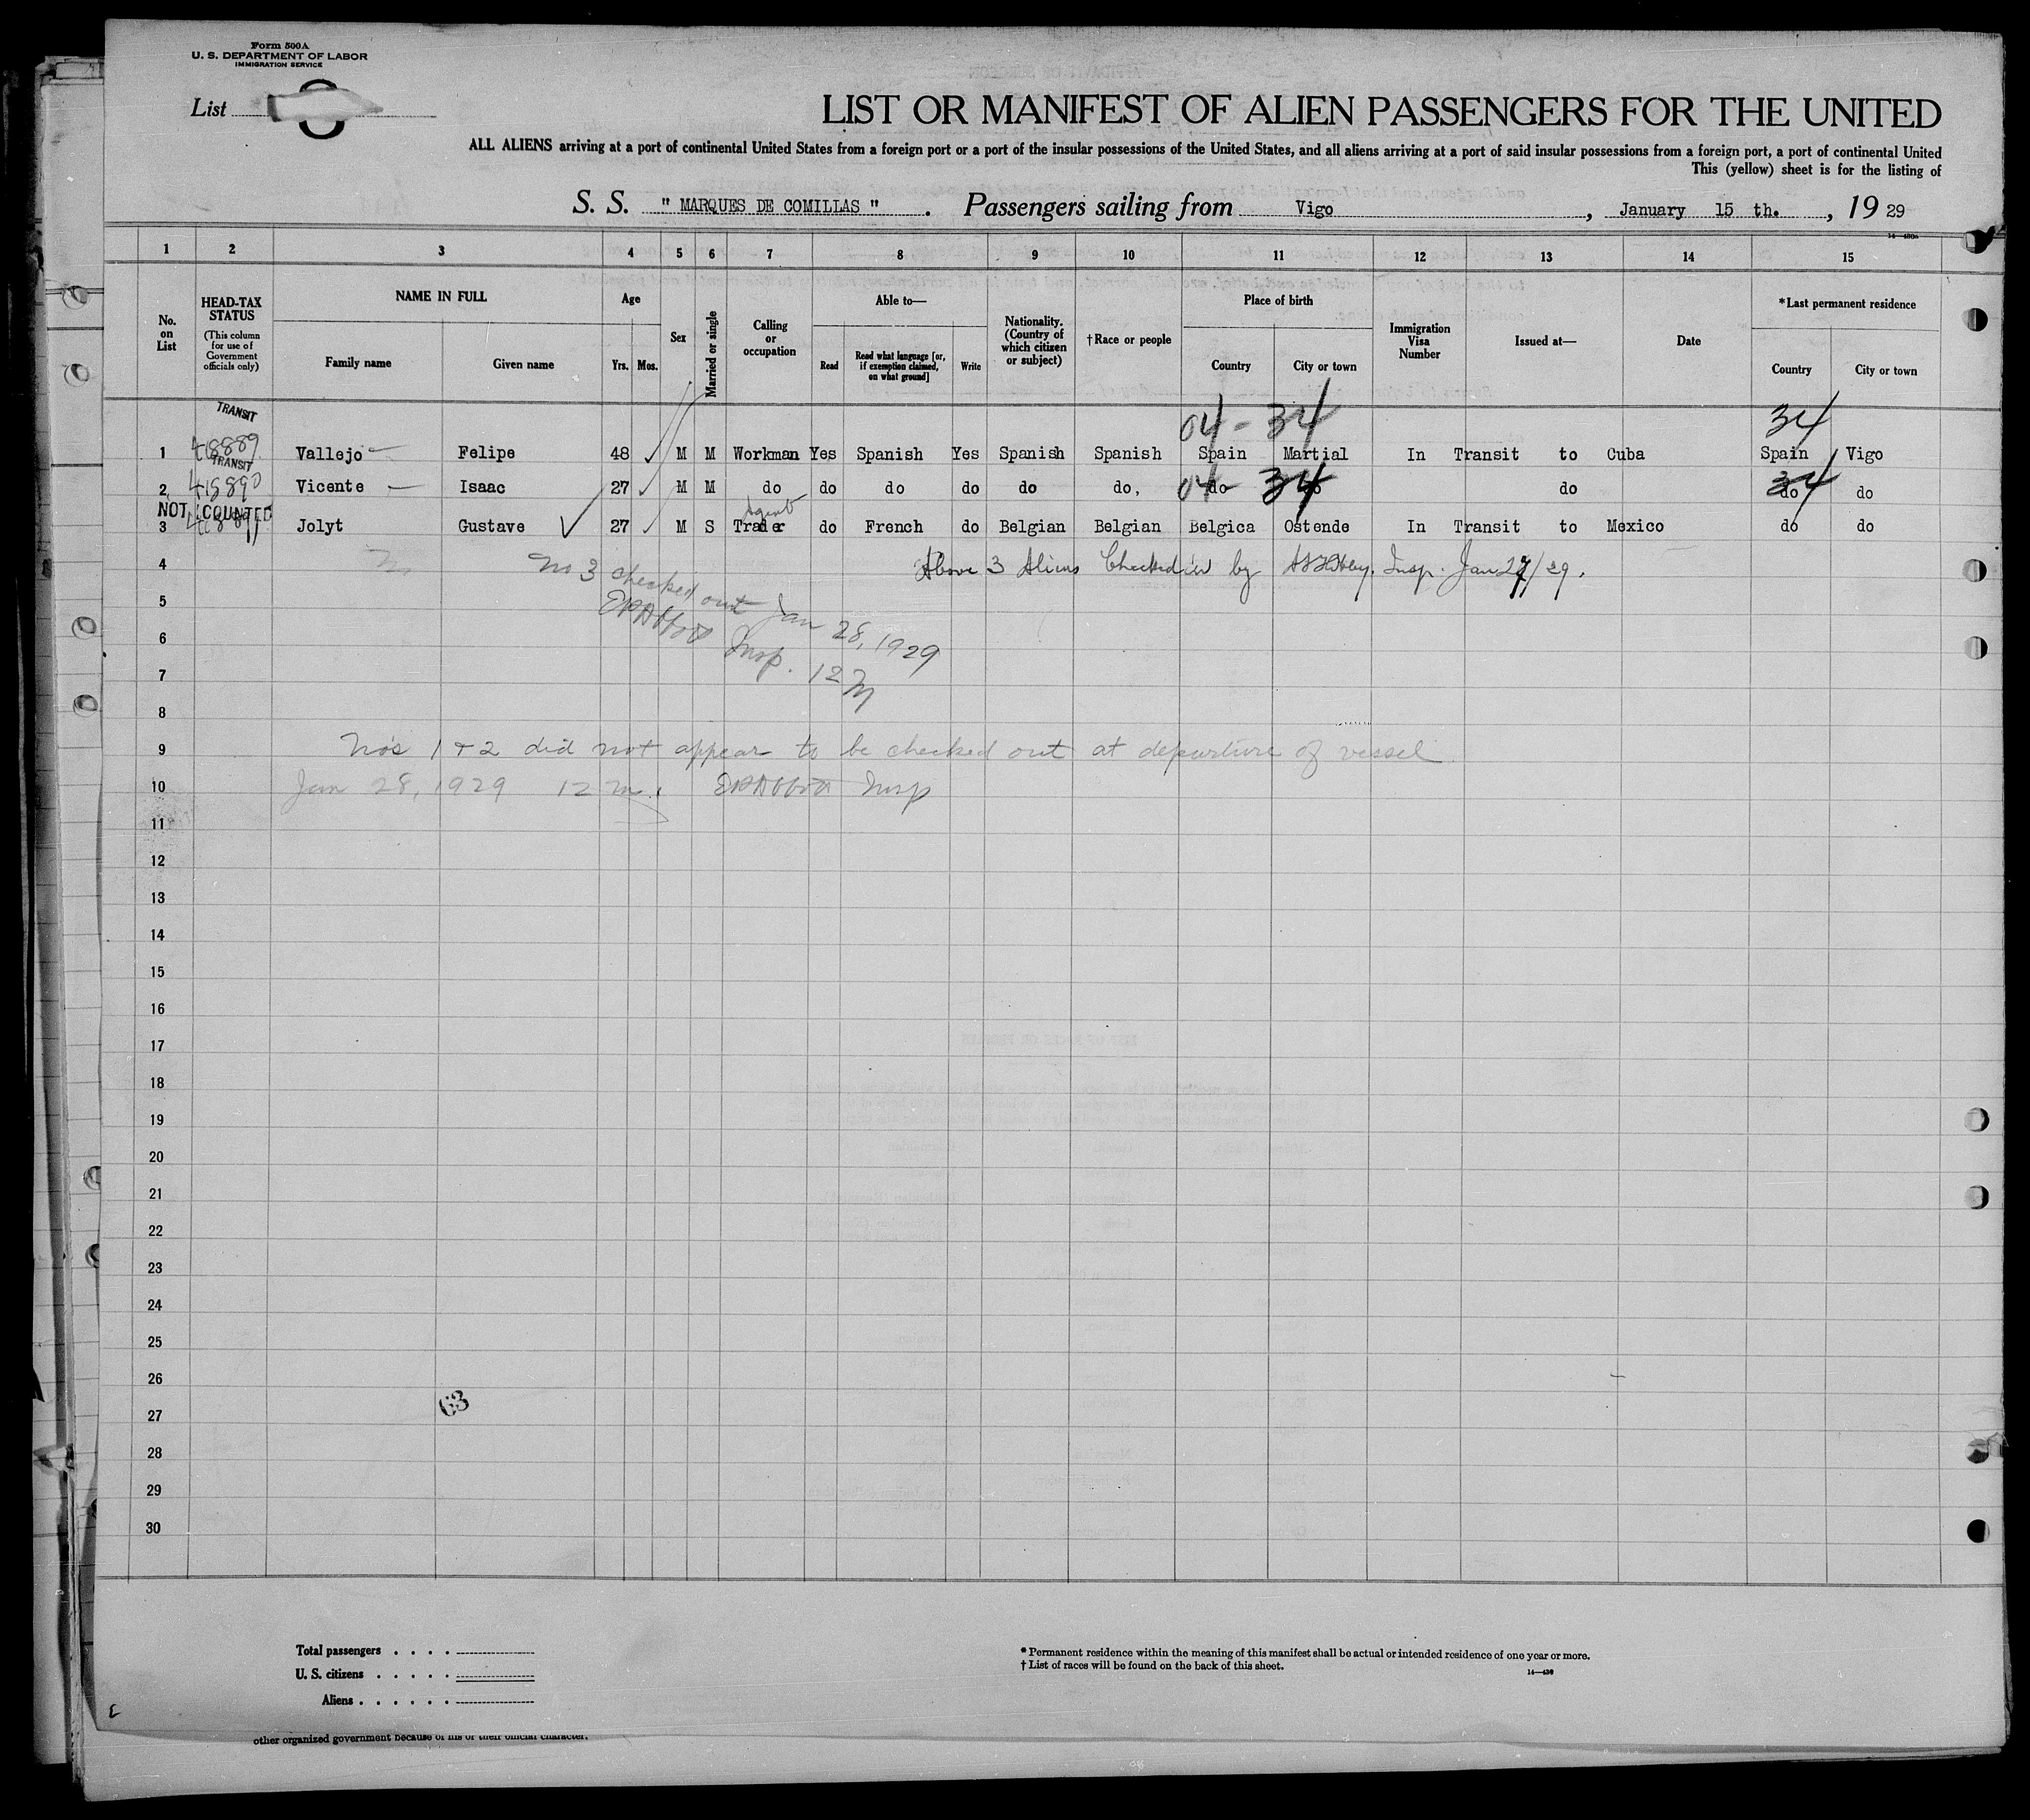 Form 500A
U. S. DEPARTMENT OF LABOR
IMMIGRATION SERVICE
List
LIST OR MANIFEST OF ALIEN PASSENGERS FOR THE UNITED
ALL ALIENS arriving at a port of continental United States from a foreign port or a port of the insular possessions of the United States, and all aliens arriving at a port of said insular possessions from a foreign port, a port of continental United
This (yellow) sheet is for the listing of
S. S. " MARQUES DE COMILLAS " . Passengers sailing from Vigo , January 15 th. , 19 29
1 2 3 4 5 6 7 8 9 10 11 12 13 14 15
No. on List
HEAD-TAX STATUS
(This column for use of Government officials only)
NAME IN FULL
Family name Given name
Age
Yrs. Mos.
Sex
Married or single
Calling or occupation
Able to—
Read Read what language [or, if exemption claimed, on what ground] Write
Nationality. (Country of which citizen or subject)
†Race or people
Place of birth
Country City or town
Immigration Visa Number
Issued at—
Date
*Last permanent residence
Country City or town
TRANSIT 04 - 34 34
1 418889 Vallejo Felipe 48 M M Workman Yes Spanish Yes Spanish Spanish Spain Martial In Transit to Cuba Spain Vigo
TRANSIT
2 418890 Vicente Isaac 27 M M do do do do do do, 04 do 34 do do 34 do
NOT COUNTED Agent
3 418891 Jolyt Gustave 27 M S Trader do French do Belgian Belgian Belgica Ostende In Transit to Mexico do do
4 No 3 checked out Jan 28, 1929
Above 3 Aliens Checked in by Insp. Jan 27/29.
5
6 Insp. 12 M
7
8
9 No's 1 & 2 did not appear to be checked out at departure of vessel
10 Jan 28, 1929 12 m. Insp
11
12
13
14
15
16
17
18
19
20
21
22
23
24
25
26
63
27
28
29
30
Total passengers . . . .
U. S. citizens . . . . .
Aliens . . . . . .
* Permanent residence within the meaning of this manifest shall be actual or intended residence of one year or more.
† List of races will be found on the back of this sheet.
14—430
other organized government because of his or their official character.